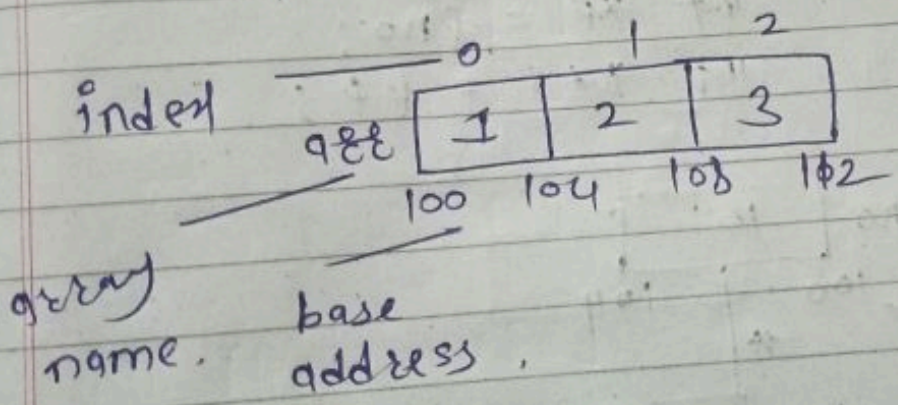 0 1 2
index
arr 1 2 3
100 104 108 112
array
name.
base
address.